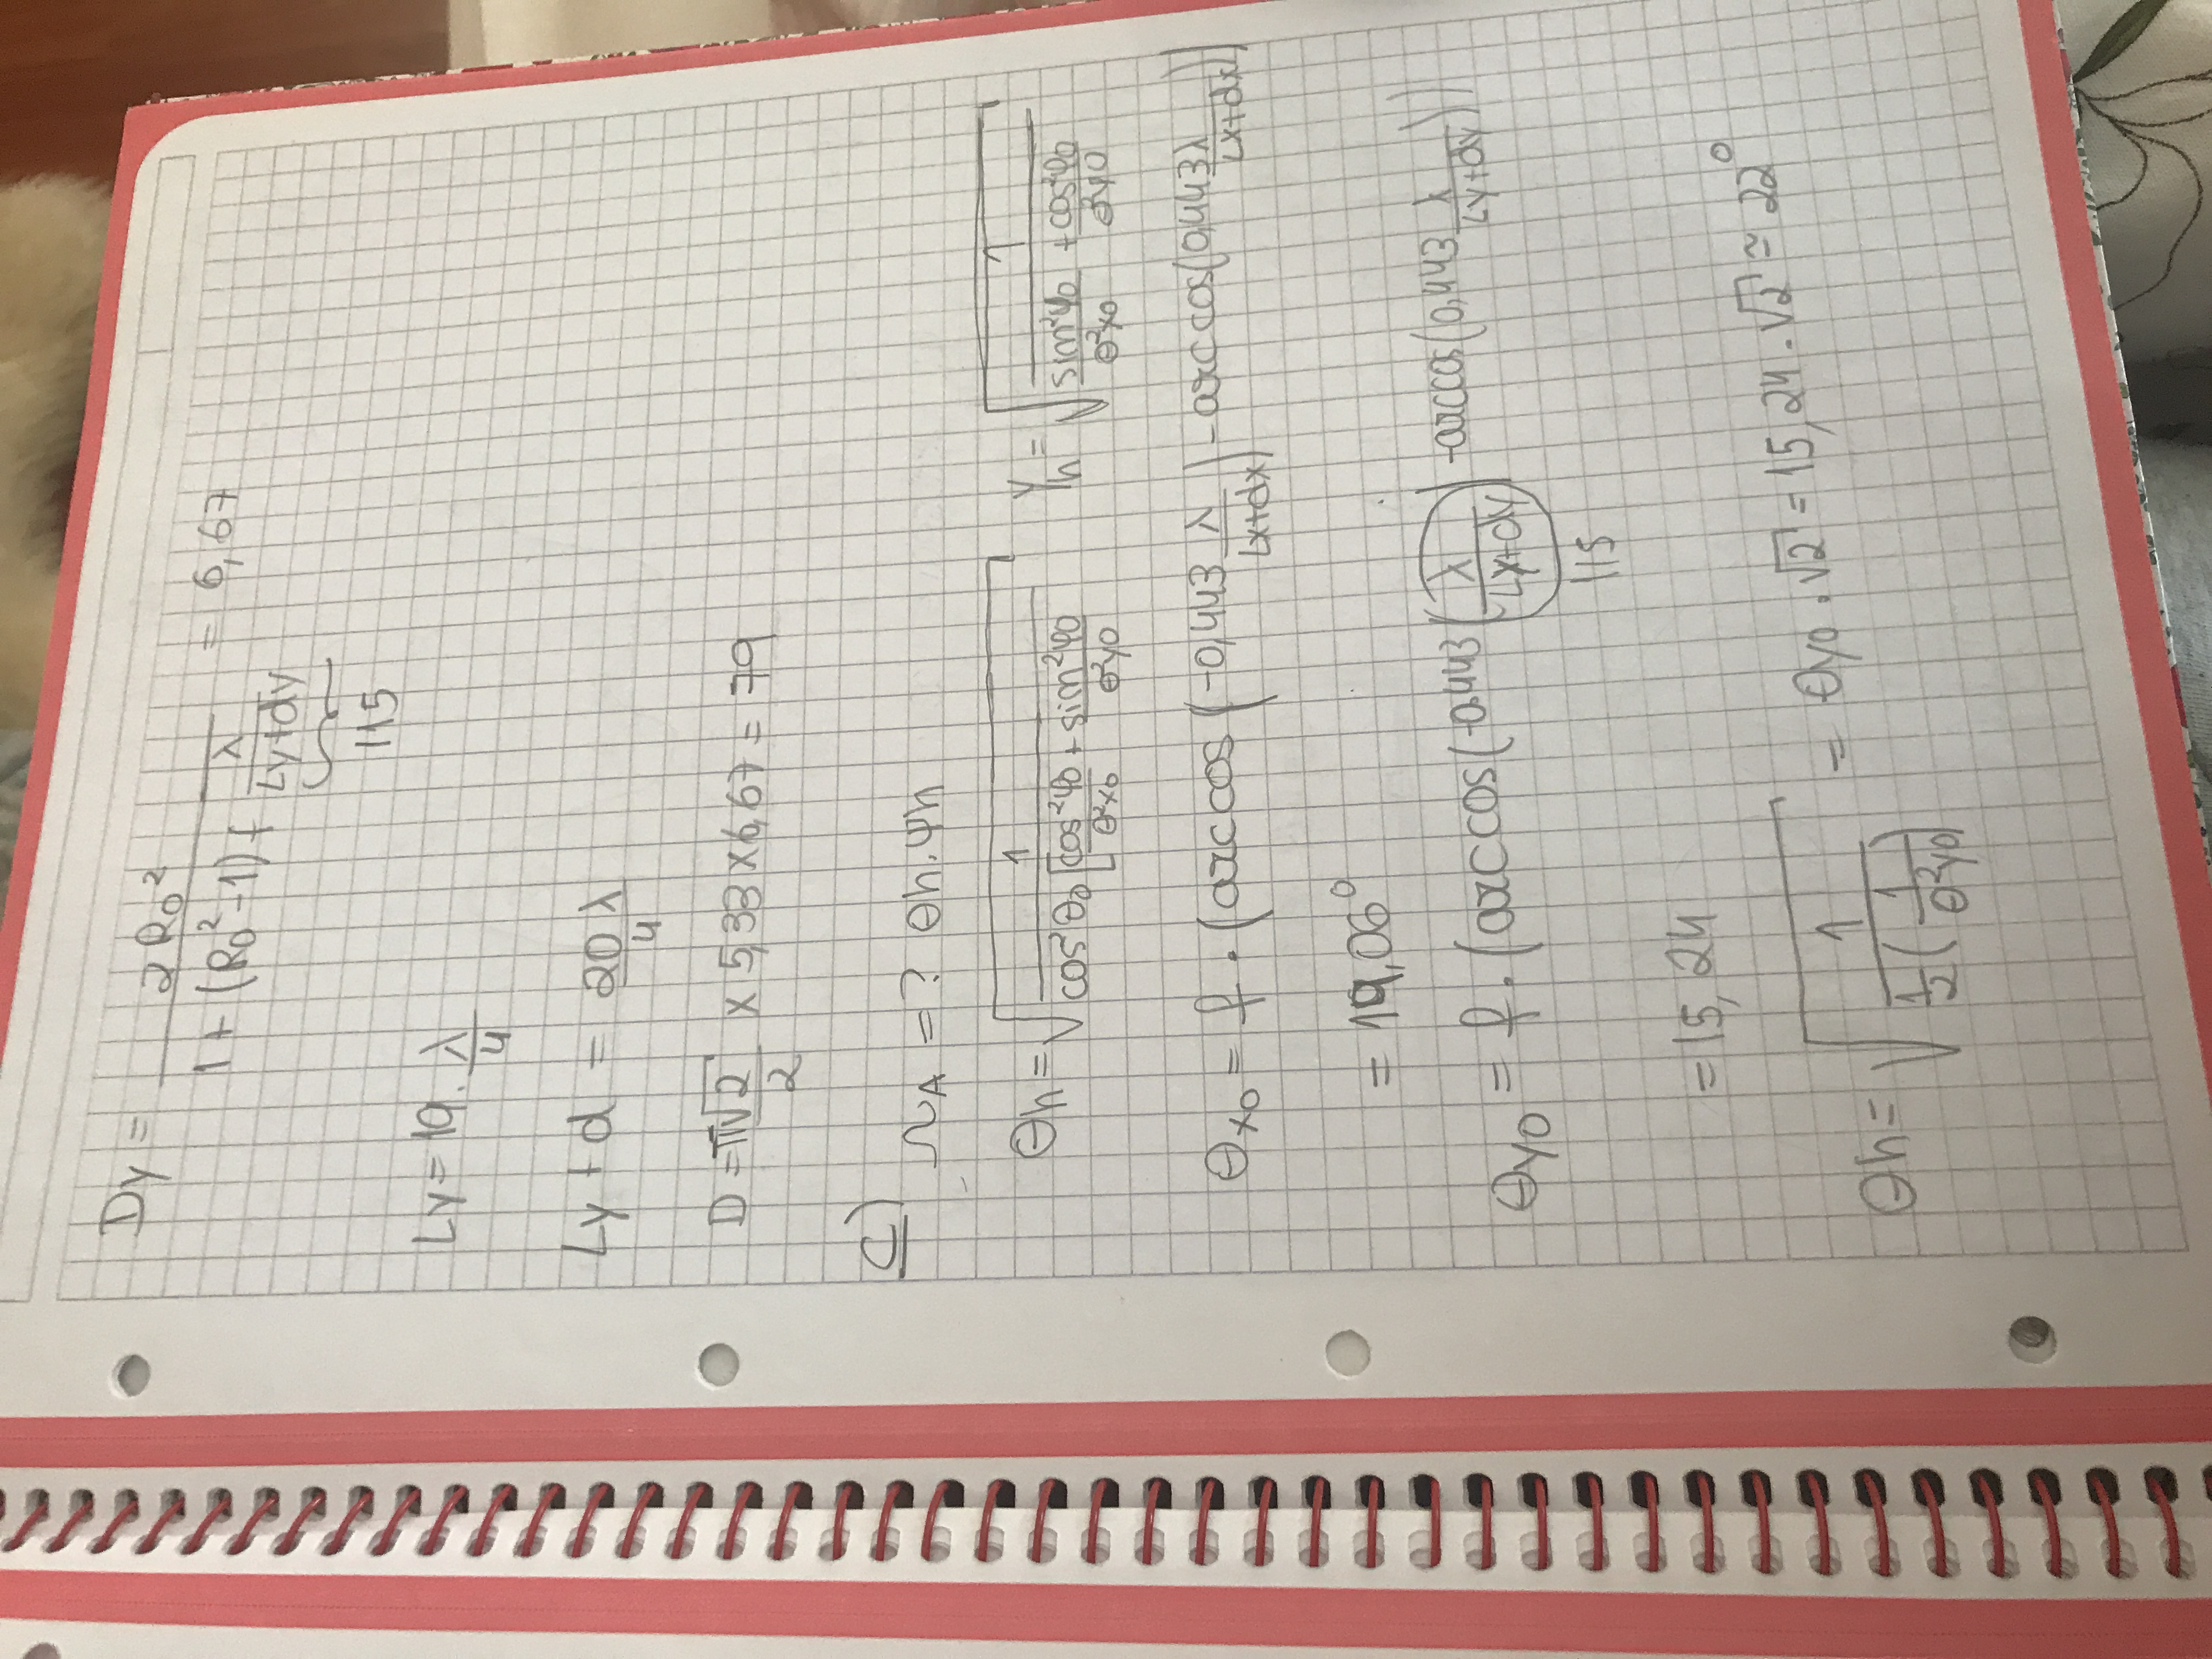 Dy = 2R₀² / (1 + (R₀² - 1) f λ/(Ly+dy)) = 6,67
115
Ly = 19 . λ/4
Ly + d = 20λ/4
D = π√2/2 x 5,33 x 6,67 = 79
C)
ΩA = ? θh.ψh
θh = √(1 / (cos²θ₀ [cos²φ0/θ²x0 + sin²φ0/θ²y0])) ψh = √(1 / (sin²φ0/θ²x0 + cos²φ0/θ²y0))
θx0 = f . (arccos(-0,443 λ/(Lx+dx)) - arccos(0,443 λ/(Lx+dx)))
= 19,06°
θy0 = f . (arccos(-0,443 (λ/(Ly+dy)) - arccos(0,443 λ/(Ly+dy)))
115
= 15,24
θh = √(1 / (1/2 (1/θ²y0))) = θy0 . √2 = 15,24 . √2 ≈ 22°